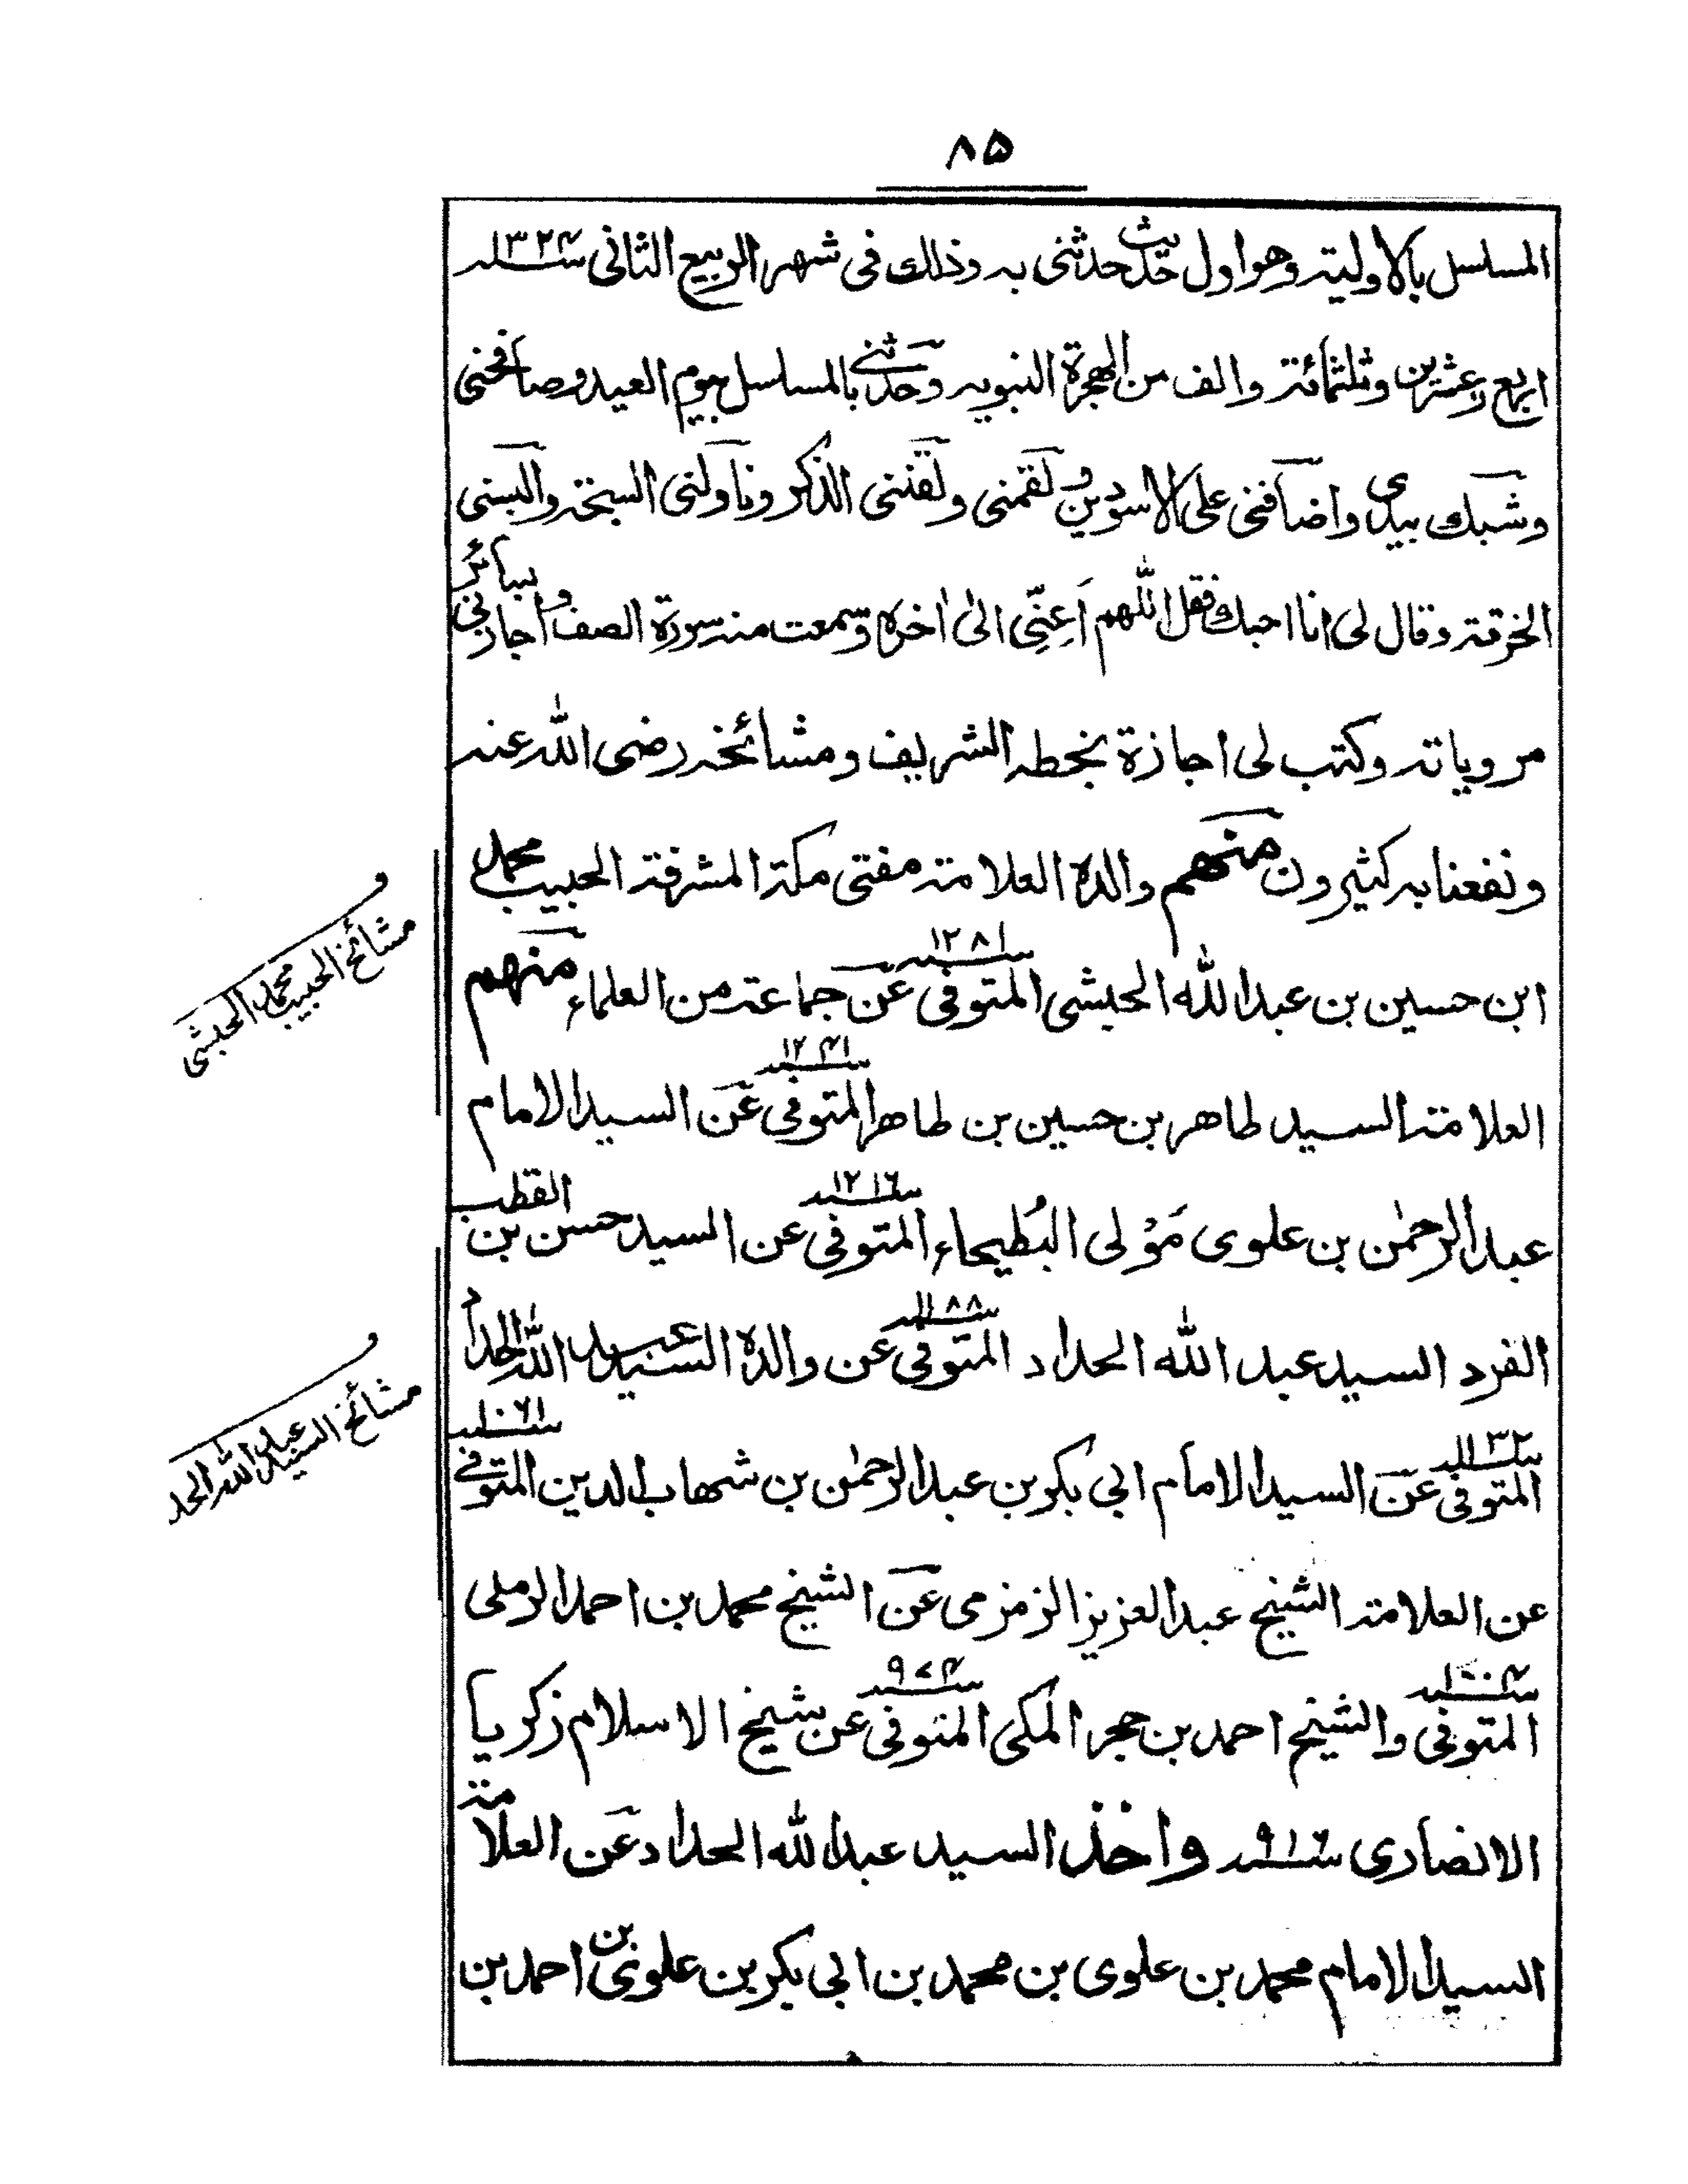 ٨٥
المسلسل بالاولية وهو اول حديث حدثنى به وذلك فى شهر الربيع الثانى سنة ١٣٢٤
اربع وعشرين وثلثمائة والف من الهجرة النبويه وحدثنى بالمسلسل بيوم العيد وصافحنى
وشبك بيدى واضافنى على الاسودين ولقمنى ولقننى الذكر وناولنى السبحة والبسنى
الخرقة وقال لى انا احبك فقل اللهم اَعِنِّى الىٰ اٰخره وسمعت منه سورة الصف واجازنى بسائر
مروياته وكتب لى اجازة بخطه الشريف ومشائخه رضى الله عنه
ونفعنا به كثيرون منهم والده العلامة مفتى مكة المشرفة الحبيب محمد
ابن حسين بن عبد الله الحبشى المتوفى سنة ١٢٨١ عن جماعة من العلماء منهم
العلامة السيد طاهر بن حسين بن طاهر المتوفى سنة ١٢٤١ عن السيد الامام
عبد الرحمٰن بن علوى مَوْلى البُطيحاء المتوفى سنة ١٢١٦ عن السيد حسن بن القطب
الفرد السيد عبد الله الحداد المتوفى سنة ١١٨٨ عن والده السيد عبد الله الحداد
المتوفى سنة ١١٣٢ عن السيد الامام ابى بكر بن عبد الرحمٰن بن شهاب الدين المتوفى سنة ١٠٦١
عن العلامة الشيخ عبد العزيز الزمزمى عن الشيخ محمد بن احمد الرملى
المتوفى سنة ١٠٠٤ والشيخ احمد بن حجر المكى المتوفى سنة ٩٧٤ عن شيخ الاسلام زكريا
الانصارى سنة ٩١٦ واخذ السيد عبد الله الحداد عن العلامة
السيد الامام محمد بن علوى بن محمد بن ابى بكر بن علوى بن احمد بن
و
مشائخ الحبيب محمد الحبشى
و
مشائخ السيد عبد الله الحد